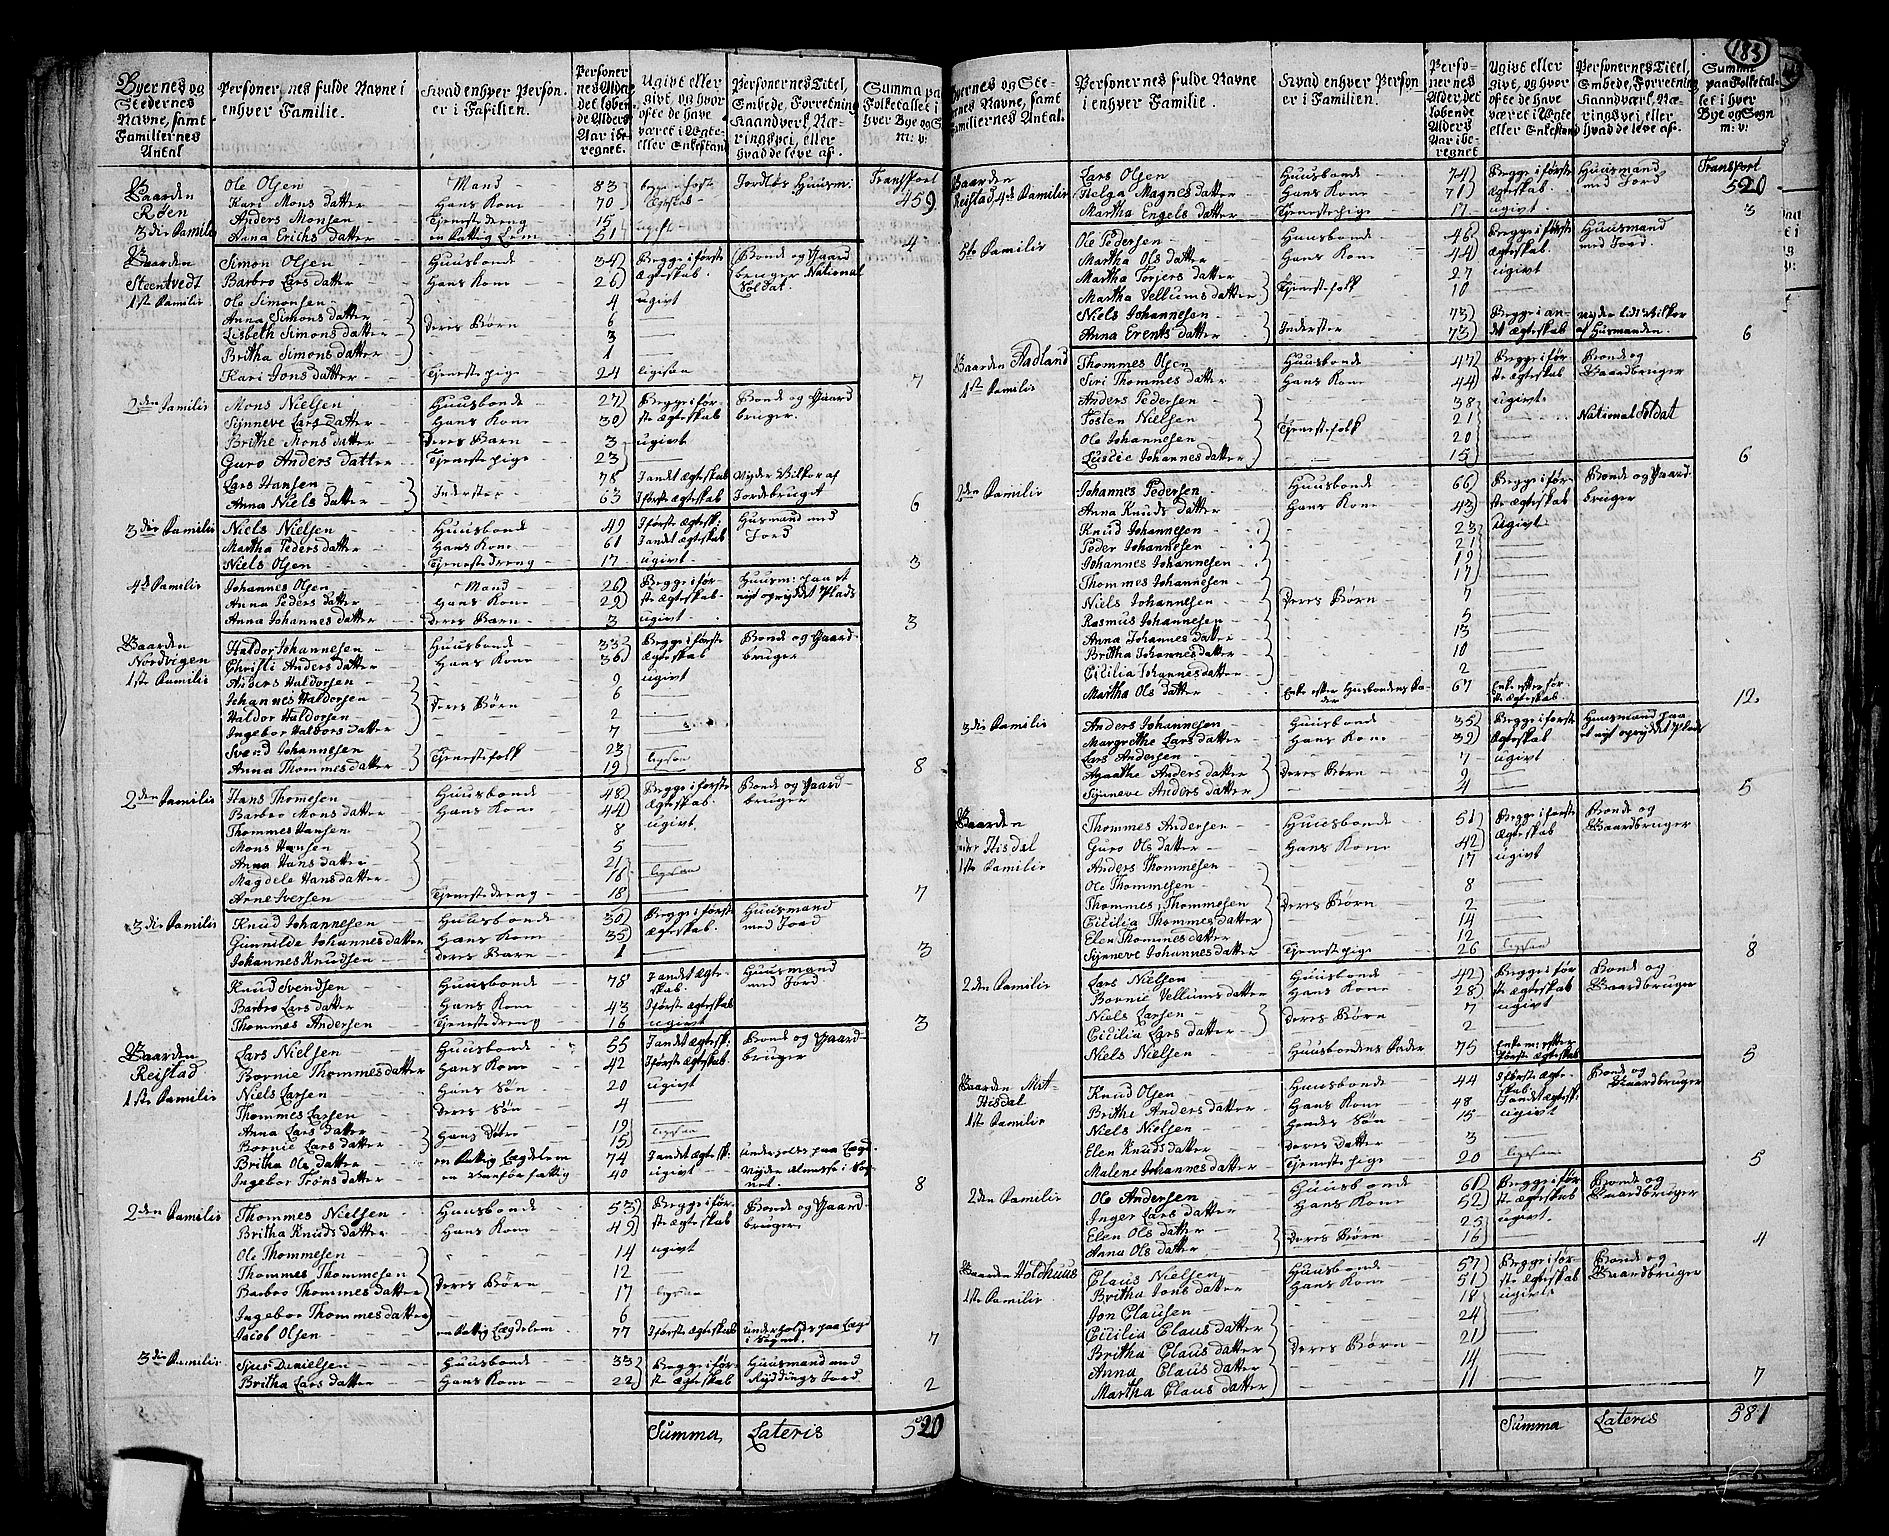 183
Byernes og Stedernes Navne, samt Familiernes Antal | Personernes fulde Navne i enhver Familie. | Hvad enhver Person er i Familien. | Personernes Alder, det løbende Alders Aar iberegnet | Ugivt eller givt, og hvor ofte de have været i Ægte- eller Enkestand | Personernes Titel, Embede, Forretning Haandverk, Næringsvei, eller hvad de leve af. | Summa paa Folketallet i hver Bye og Sogn m: v:
Transport 459
Gaarden Røen 3die Familie | Ole Olsen | Mand | 83 | | Jordløs Huusm:
Kari Mons datter | Hans Kone | 70 | Ægteskab
Anders Monsen | Tjenestedreng | 15
Anna Erichs datter | en fattig Lem | 51 | ugift | 4
Gaarden Steentvedt 1ste Familie | Simon Olsen | Huusbonde | 34 | Begge i første | Bonde og Gaard
Barbro Lars datter | Hans Kone | 26 | Ægteskab | bruger National Soldat.
Ole Simonsen | 4 | ugivt
Anna Simons datter | Deres Børn | 6
Lisbeth Simons datter | 3
Britha Simons datter | 1
Kari Jons datter | Tjenestepige | 24 | ligesaa | 7
2den Familie | Mons Nielsen | Huusbonde | 27 | Begge i før- | Bonde og Gaard
Synneve Lars datter | Hans Kone | 30 | ste Ægteskab | bruger.
Brithe Mons datter | Deres Barn | 3 | ugivt
Guro Anders datter | Tjenestepige | 23
Lars Hansen | Inderster | 78 | I andet Ægteskab | Nyder Vilkor af
Anna Niels datter | 63 | I første Ægteskab | Jordebruget | 6
3die Familie | Niels Nielsen | Huusbonde | 49 | I første Ægtesk: | Husmand med
Martha Peders datter | Hans Kone | 61 | I andet Ægteskab | Jord
Niels Olsen | Tjenestedreng | 17 | ugivt | 3
4de Familie | Johannes Olsen | Mand | 26 | Begge i før- | Huusm: paa et
Anna Peders datter | Hans Kone | 29 | ste Ægteskab | nyt opryddet Plads
Anna Johannes datter | Deres Barn | 3 | ugivt | 3
Gaarden Nordvigen 1ste Familie | Haldor Johannesen | Huusbonde | 33 | Begge i første | Bonde og Gaard-
Christi Anders datter | Hans Kone | 36 | Ægteskab | bruger
Anders Haldorsen | 9 | ugivt
Johannes Haldorsen | Deres Børn | 6
Haldor Haldorsen | 2
Ingebor Haldors datter | 7
Svend Johannesen | Tjenestefolk | 23 | ligesaa
Anna Thommes datter | 19 | 8
2den Familie | Hans Thomesen | Huusbonde | 48 | Begge i første | Bonde og Gaard-
Barbro Mons datter | Hans Kone | 44 | Ægteskab. | bruger
Thommes Hansen | 8 | ugivt
Mons Hansen | 5
Anna Hans datter | 21 | ligesaa
Magdele Hans datter | 16
Arne Iversen | Tjenestedreng | 18 | 7
3die Familie | Knud Johannesen | Huusbonde | 30 | Begge i første | Huusmand
Gunnilde Johannes datter | Hans Kone | 35 | Ægteskab. | med Jord
Johannes Knudsen | Deres Barn | 1 | 3
Knud Svendsen | Huusbonde | 78 | I andet Ægteskab. | Huusmand med Jord
Barbro Lars datter | Hans Kone | 43 | I første Ægteskab
Thommes Andersen | Tjenestedreng | 16 | ugivt | 3
Gaarden Reistad 1ste Familie | Lars Nielsen | Huusbonde | 55 | I andet Ægtesk: | Bonde og Gaard-
Bornie Thommes datter | Hans Kone | 42 | I første Ægteskab | bruger
Niels Larsen | Hans Søn | 20 | ugivt
Thommes Larsen | Deres Søn | 4
Anna Lars datter | Hans Døtre | 19 | ligesaa
Bornie Lars datter | 15
Britha Ols datter | en fattig Lægdelem | 74 | I andet Ægtesk: | underholdes paa Lægd
Ingebor Trøns datter | en vanfør fattig | 40 | ugivt | Nyder Almisse i | 8
2den Familie | Thommes Nielsen | Huusbonde | 53 | Begge i før- | Bonde og Gaard-
Britha Knuds datter | Hans Kone | 49 | ste Ægteskab | bruger
Ole Thommesen | 14 | ugivt
Thommes Thommesen | Deres Børn | 12
Barbro Thommes datter | 17 | ligesaa
Ingebor Thommes datter | 6
Jacob Olsen | en fattig Lægdelem | 77 | I første Ægteskab | underholdes paa Lægd i Sognet. | 7
3die Familie | Sjur Danielsen | Huusbonde | 33 | Begge i før- | Huusmand med
Britha Lars datter | Hans Kone | 22 | ste Ægteskab | Ryddings Jord | 2
Summa Lateris 520
Byernes og Stedernes Navne, samt Familiernes Antal. | Personernes fulde Navne i enhver Familie. | Hvad enhver Person er i Familien. | Personernes Alder, det løbende Alders Aar iberegnet | Ugivt eller givt, og hvor ofte de have været i Ægte- eller Enkestand | Personernes Titel, Embede, Forretning Haandverk, Næringsvei, eller hvad de leve af. | Summa paa Folketallet i hver Bye og Sogn m: v:
Transport 520
Gaarden Reistad, 4de Familie | Lars Olsen | Huusbonde | 74 | Begge i første | Huusmand
Helga Magnes datter | Hans Kone | 71 | Ægteskab. | med Jord
Martha Engels datter | Tjenestepige | 17 | ugivt. | 3
5te Familie | Ole Pedersen | Huusbonde | 46 | Begge i første | Huusmand
Martha Ols datter | Hans Kone | 44 | Ægteskab. | med Jord.
Martha Torjers datter | Tjenestefolk | 27 | ugivt
Martha Vellums datter | 10
Niels Johannesen | Inderster | 73 | Begge i an- | nyder lidt Vilkor
Anna Erents datter | 73 | det Ægteskab | af Husmanden. | 6
Gaarden Fladland 1ste Familie | Thommes Olsen | Huusbonde | 47 | Begge i før- | Bonde og
Siri Thommes datter | Hans Kone | 44 | ste Ægteskab | Gaardbruger
Anders Pedersen | 38 | ugivt.
Tosten Nielsen | Tjenestefolk | 21 | National Soldat
Ole Johannesen | 20
Luscie Johannes datter | 15 | 6
2den Familie | Johannes Pedersen | Huusbonde | 66 | Begge i før- | Bonde og Gaard-
Anna Knuds datter | Hans Kone | 43 | ste Ægteskab | bruger
Knud Johannesen | 23 | ugivt
Peder Johannesen | 21
Johannes Johannesen | 19
Thommes Johannesen | 17
Niels Johannesen | Deres Børn | 7
Rasmus Johannesen | 5
Anna Johannes datter | 13
Britha Johannes datter | 10
Cicilia Johannes datter | 2
Martha Ols datter | Enke efter Husbondens Fader | 67 | Enke efter første Ægteskab | 12
3die Familie | Anders Johannesen | Huusbonde | 35 | Begge i første | Huusmand paa
Margrethe Lars datter | Hans Kone | 39 | Ægteskab | et nyt opryddet Plads
Lars Andersen | 7 | ugivt
Agaathe Anders datter | Deres Børn | 9
Synneve Anders datter | 4 | 5
Gaarden Hisdal 1ste Familie | Thommes Andersen | Huusbonde | 51 | Begge i første | Bonde og
Guro Ols datter | Hans Kone | 42 | Ægteskab | Gaardbruger
Anders Thommesen | 17 | ugivt
Ole Thommesen | 8
Thommes Thommesen | Deres Børn | 2
Cicilia Thommes datter | 14
Elen Thommes datter | 12
Synneve Johannes datter | Tjenestepige | 26 | ligesaa | 8
2den Familie | Lars Nielsen | Huusbonde | 42 | Begge i før- | Bonde og
Bornie Vellums datter | Hans Kone | 28 | ste Ægteskab | Gaardbruger
Niels Larsen | Deres Børn | 7 | ugivt
Cicilia Lars datter | 2
Niels Nielsen | Huusbondens Fader | 75 | Enkem: efter første Ægteskab | 5
Gaarden Hisdal 1ste Familie | Knud Olsen | Huusbonde | 44 | I første Ægteskab. | Bonde og Gaardbruger
Brithe Anders datter | Hans Kone | 48 | I andet Ægtesk.
Niels Nielsen | Hendes Søn | 15 | ugivt
Elen Knuds datter | Deres Datter | 3
Malene Johannes datter | Tjenestepige | 20 | ligesaa | 5
2den Familie | Ole Andersen | Huusbonde | 61 | Begge i før- | Bonde og
Inger Lars datter | Hans Kone | 52 | ste Ægteskab | Gaardbruger
Elen Ols datter | Deres Børn | 25 | ugivt.
Anna Ols datter | 16 | 4
Gaarden Holdhuus 1ste Familie | Claus Nielsen | Huusbonde | 57 | Begge i før- | Bonde og
Britha Jons datter | Hans Kone | 51 | ste Ægteskab | Gaardbruger
Jon Clausen | 18 | ugivt
Cicilia Claus datter | 24
Britha Claus datter | Deres Børn | 21
Anna Claus datter | 14
Martha Claus datter | 11 | 7
Summa Lateris 581